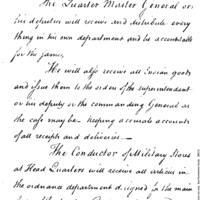 The Quarter Master General or
his deputies will receive and distribute every
thing in his own department and be accountable
for the same.
He will also receive all Indian goods
and issue them to the orders of the superintendent
or his deputy or the commanding General as
the case may be. keeping accurate accounts
of all receipts and deliveries.—
The Conductor of Military Stores
at Head Quarters will receive all articles in
the ordnance department designed for the main